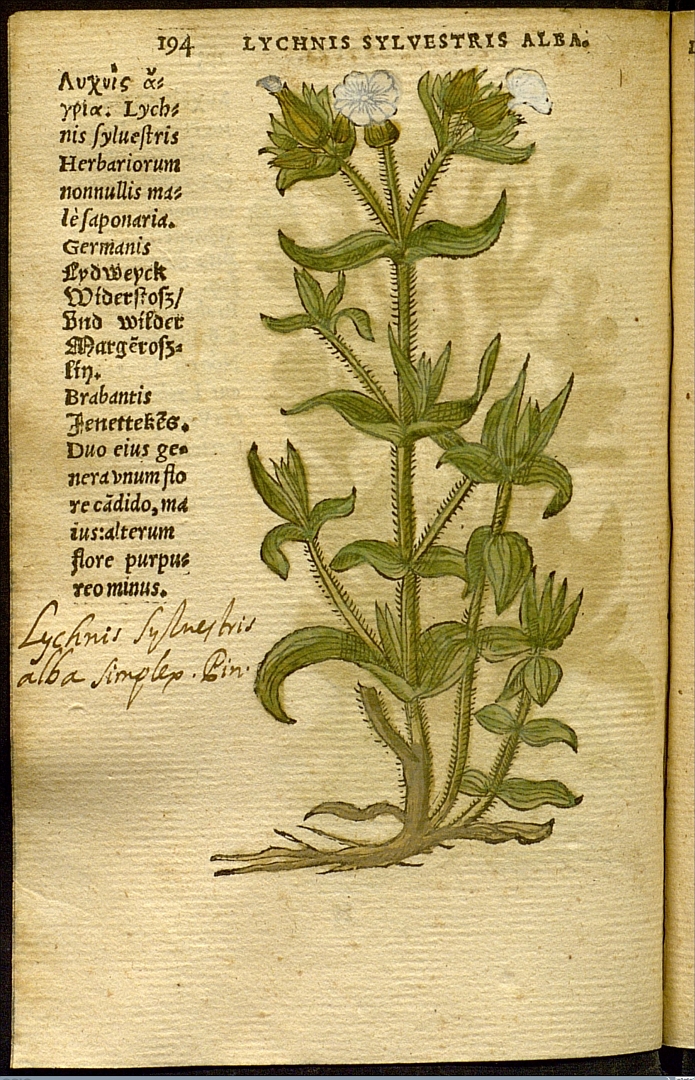 194 LYCHNIS SYLVESTRIS ALBA.
Λυχνὶς ἄ-
γρια. Lych-
nis ſylueſtris
Herbariorum
nonnullis ma-
lè ſaponaria.
Germanis
Lydweyck
Widerſtoſz/
Vnd wilder
Margẽroſz-
lin.
Brabantis
Jenettekẽs.
Duo eius ge-
nera vnum flo
re cãdido, ma
ius: alterum
flore purpu-
reo minus.
Lychnis Sylveſtris
alba simplex. Pin.